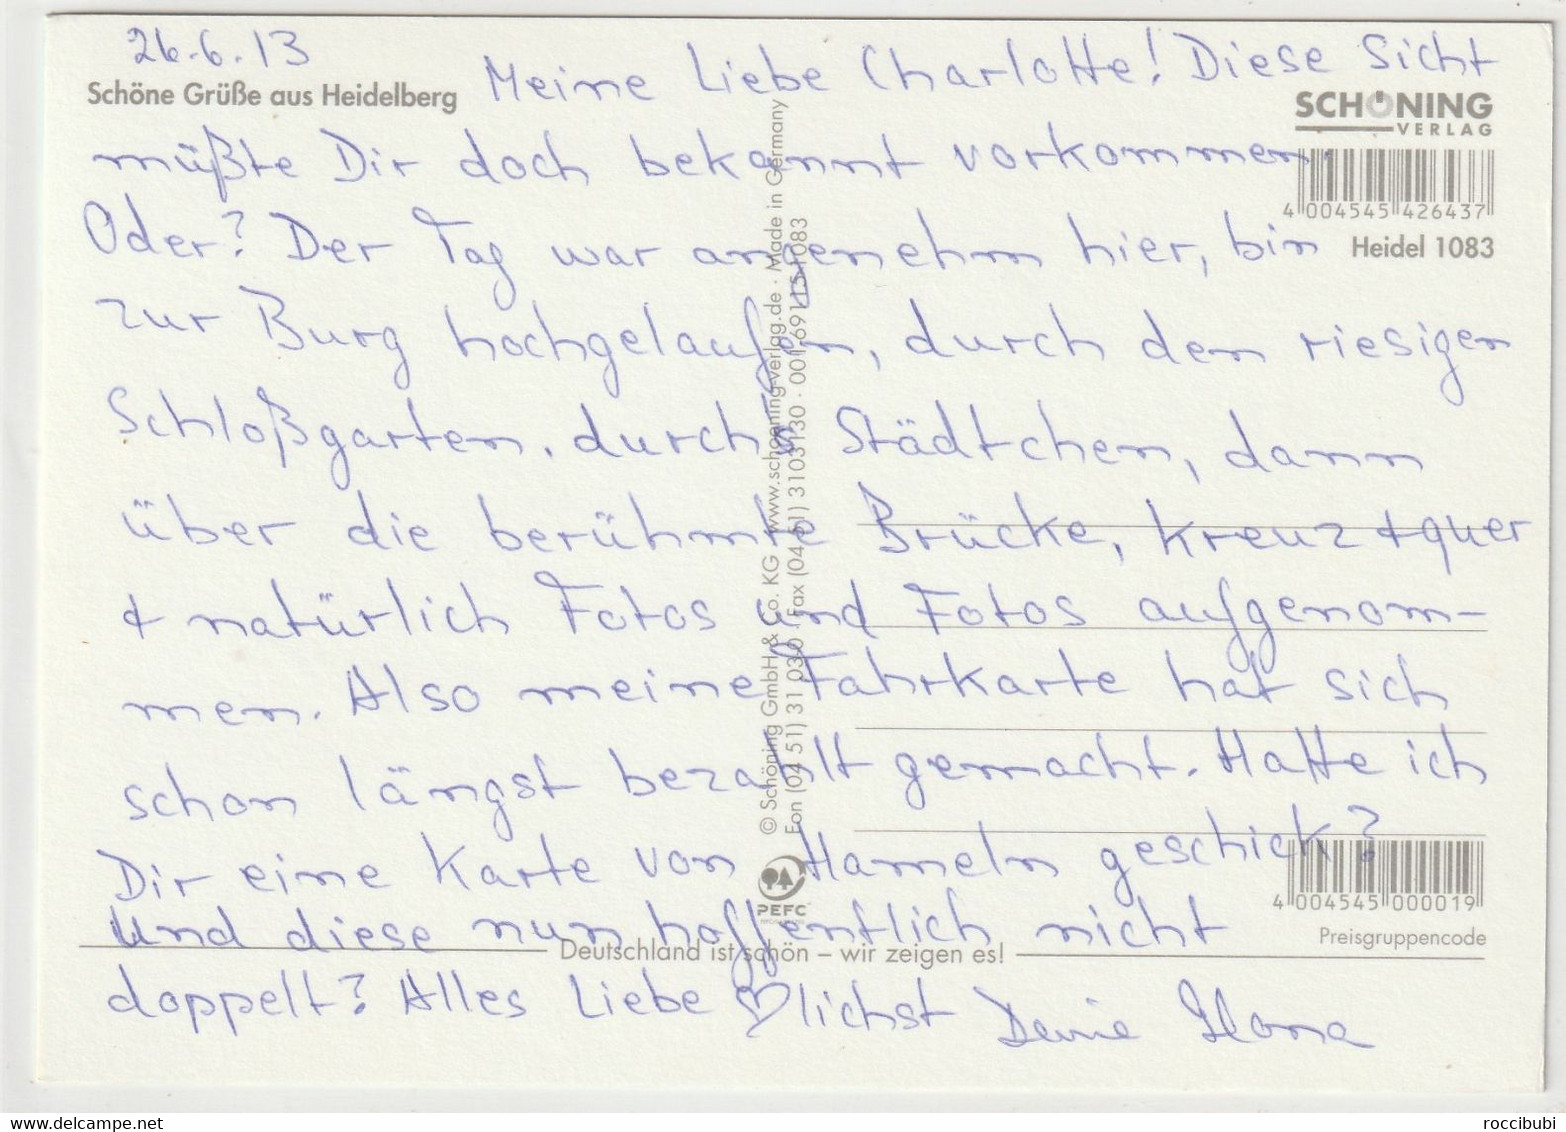 26.6.13
Schöne Grüße aus Heidelberg
Meine Liebe Charlotte! Diese Sicht
SCHÖNING
VERLAG
müßte Dir doch bekannt vorkommen.
4 004545 426437
Oder? Der Tag war angenehm hier, bin
Heidel 1083
zur Burg hochgelaufen, durch den riesigen
Schloßgarten, durchs Städtchen, dann
über die berühmte Brücke, kreuz + quer
+ natürlich Fotos und Fotos aufgenom-
men. Also meine Fahrkarte hat sich
schon längst bezahlt gemacht. Hatte ich
Dir eine Karte von Hameln geschickt?
Und diese nun hoffentlich nicht
doppelt? Alles Liebe ♡lichst Deine Ilona
© Schöning GmbH & Co. KG · www.schoening-verlag.de · Made in Germany
Fon (04 51) 31 03 0 · Fax (04 51) 3103130 · 001 69115 1083
PEFC
4 004545 000019
Preisgruppencode
Deutschland ist schön – wir zeigen es!
delcampe.net
roccibubi